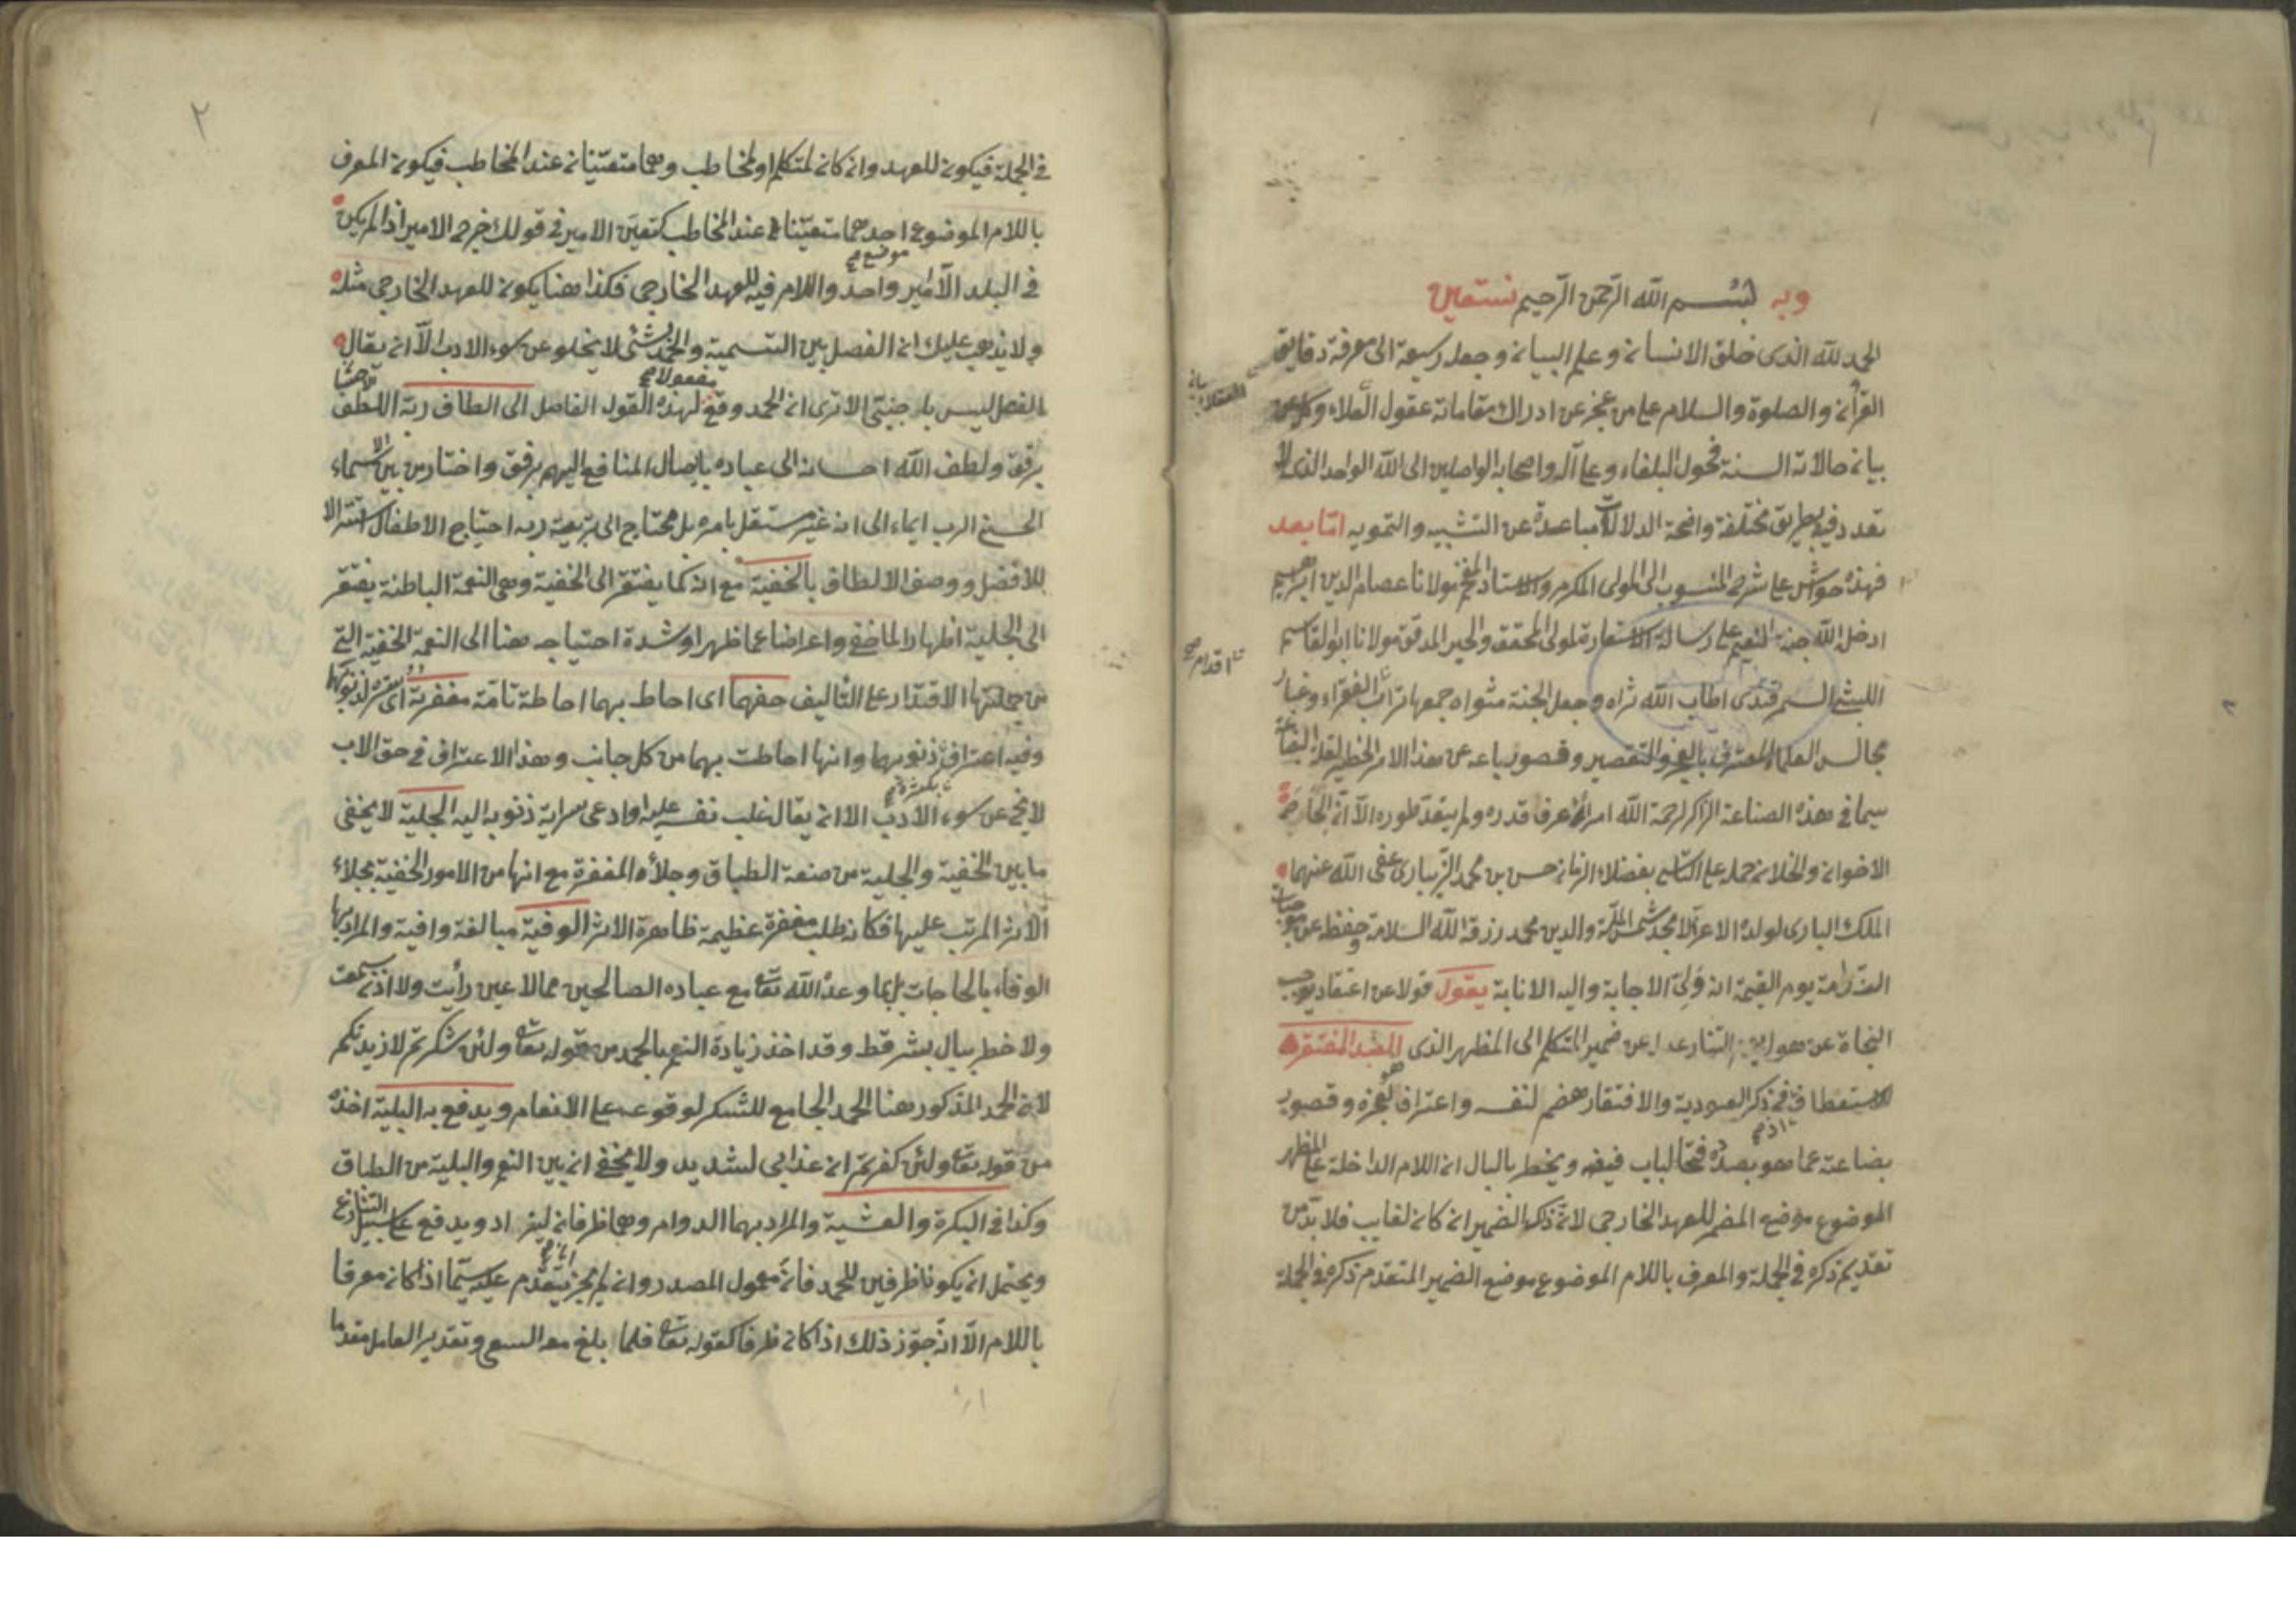 وبه بسم الله الرحمن الرحيم نستعين
الحمد لله الذى خلق الانسان وعلم البيان وجعل وسيعة الى معرفة دقايق
القرآن والصلوة والسلام على من عجز عن ادراك مقاماته عقول العلاء وكل عن
بيان حالاته السنة فحول البلغاء وعلى آله واصحابه الواصلين الى الله الواحد الذى لا
تعدد فيه بطريق مختلفة واضحة الدلالات مباعدة عن التشبيه والتمويه امّا بعد
فهذه حواش على شرح المنسوب الى المولى المكرم والاستاد المفخم مولانا عصام الدين ابراهيم
ادخل الله جنة النعيم على رسالة الاستعارة للمولى المحقق والحبر المدقق مولانا ابو القاسم
الليثى السمرقندى اطاب الله ثراه وجعل الجنة مثواه جمعها تراب اقدام الفقراء وغبار
مجالس العلماء المعترف بالعجز والتقصير وقصور باعه عن هذا الامر الخطير لقلة البضاعة
سيما فى هذه الصناعة الزاكر لرحمة الله امرأ عرف قدره ولم يتعد طوره الا ان
الاخوان والخلان حمله على التاسى بفضلاء الزمان حسن بن محمد الزيبارى عفى الله عنهما
الملك البارى لولده الاعز الامجد شمس الملة والدين محمد رزقه الله السلامة وحفظ عن موجبات
الندامة يوم القيمة انه ولى الاجابة واليه الانابة يقول قولا عن اعتقاد يوجب
النجاة عن هول يوم التناد عدل عن ضمير المتكلم الى المظهر الذى هو العبد المفتقر
للاستعطاف فى ذكر العبودية والافتقار هضم لنفسه واعتراف لعجزه وقصور
بضاعته عما هو بصدده فتحا لباب فيضه ويخطر بالبال ان اللام الداخلة على المظهر
الموضوع موضع المضمر للعهد الخارجى لانه ذكر الضمير ان كان لغايب فلا بد من
تقديم ذكره فى الجملة والمعرف باللام الموضوع موضع الضمير المتقدم ذكره فى الجملة
٢
فى الجملة فيكون للعهد وان كان لمتكلم او لمخاطب وهما متعينان عند المخاطب فيكون المعرف
باللام الموضوع موضع احدهما متعينا عند المخاطب كتعين الامير فى قولك خرج الامير اذا لم يكن
فى البلد الا امير واحد واللام فيه للعهد الخارجى فكذا هنا يكون للعهد الخارجى مثله
ولا يذهب عليك ان الفصل بين التسمية والحمد بشئ لا يخلو عن سوء الادب الا ان يقال
الفصل ليس باجنبى الا ترى ان الحمد وقع مفعولا لهذه القول الفاصل الى الطاف ربه اللطف
برفق ولطف الله احسانه الى عباده بايصال المنافع اليهم برفق واختار من بين الاسماء
الحسنى الرب ايماء الى انه غير مستقل بامره بل محتاج الى تربيعة ربه احتياج الاطفال
للافضل ووصف الالطاف بالخفية مع انه كما يفتقر الى الخفية وهى النعمة الباطنة يفتقر
الى الجلية اظهارا لما خفى واعراضا عما ظهر او شدة احتياجه هنا الى النعمة الخفية التى
من جملتها الاقتدار على التأليف حفهما اى احاط بهما احاطة تامة مغفرته اى ستره لذنوبهما
وفيه اعتراف بكثرة ذنوبهما وانها احاطت بهما من كل جانب وهذا الاعتراف فى حق الاب
لا يخ عن سوء الادب الا ان يقال غلب نفسه عليه او ادعى سراية ذنوبه اليه الجلية لا يخفى
ما بين الخفية والجلية من صنعة الطباق وجلاء المغفرة مع انها من الامور الخفية بجلاء
الاثر المرتب عليها فكانه طلب مغفرة عظيمة ظاهرة الاثر الوفية مبالغة وافية والمراد بها
الوفاء بالحاجات بل بما وعد الله تعا مع عباده الصالحين مما لا عين رأيت ولا اذن سمعت
ولا خطر ببال بشر قط وقد اخذ زيادة النعم بالحمد من قوله تعا ولئن شكرتم لازيدنكم
لان الحمد المذكور هنا الحمد الجامع للشكر لوقوعه على الانعام ويدفع به البلية اخذه
من قوله تعا ولئن كفرتم ان عذابى لشديد ولا يخفى ان بين النعم والبلية من الطباق
وكذا فى البكرة والعشية والمراد بهما الدوام وهما ظرفان ليزداد ويدفع على سبيل التنازع
ويحتمل ان يكونا ظرفين للحمد فان معمول المصدر وان لم يجز تقدم عليه سيما اذا كان معرفا
باللام الا انه جوز ذلك اذا كان ظرفا كقوله تعا فلما بلغ معه السعى وتقدير العامل مقدما